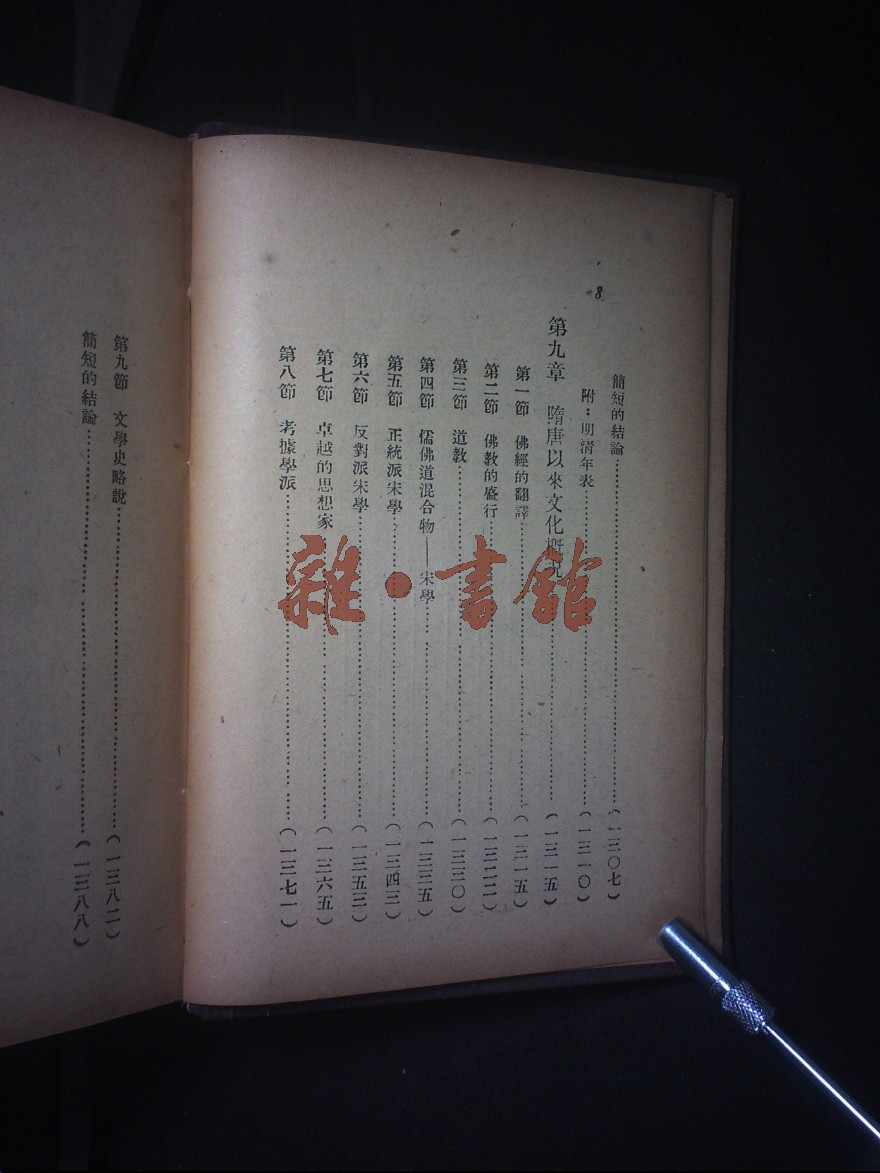 8
簡短的結論……(一三〇七)
附：明淸年表……(一三一〇)
第九章 隋唐以來文化槪況……(一三一五)
第一節 佛經的翻譯……(一三一五)
第二節 佛教的盛行……(一三二二)
第三節 道教……(一三三〇)
第四節 儒佛道混合物——宋學……(一三三五)
第五節 正統派宋學……(一三四三)
第六節 反對派宋學……(一三五三)
第七節 卓越的思想家……(一三六五)
第八節 考據學派……(一三七一)
第九節 文學史略說……(一三八二)
簡短的結論……(一三八八)
雜·書館